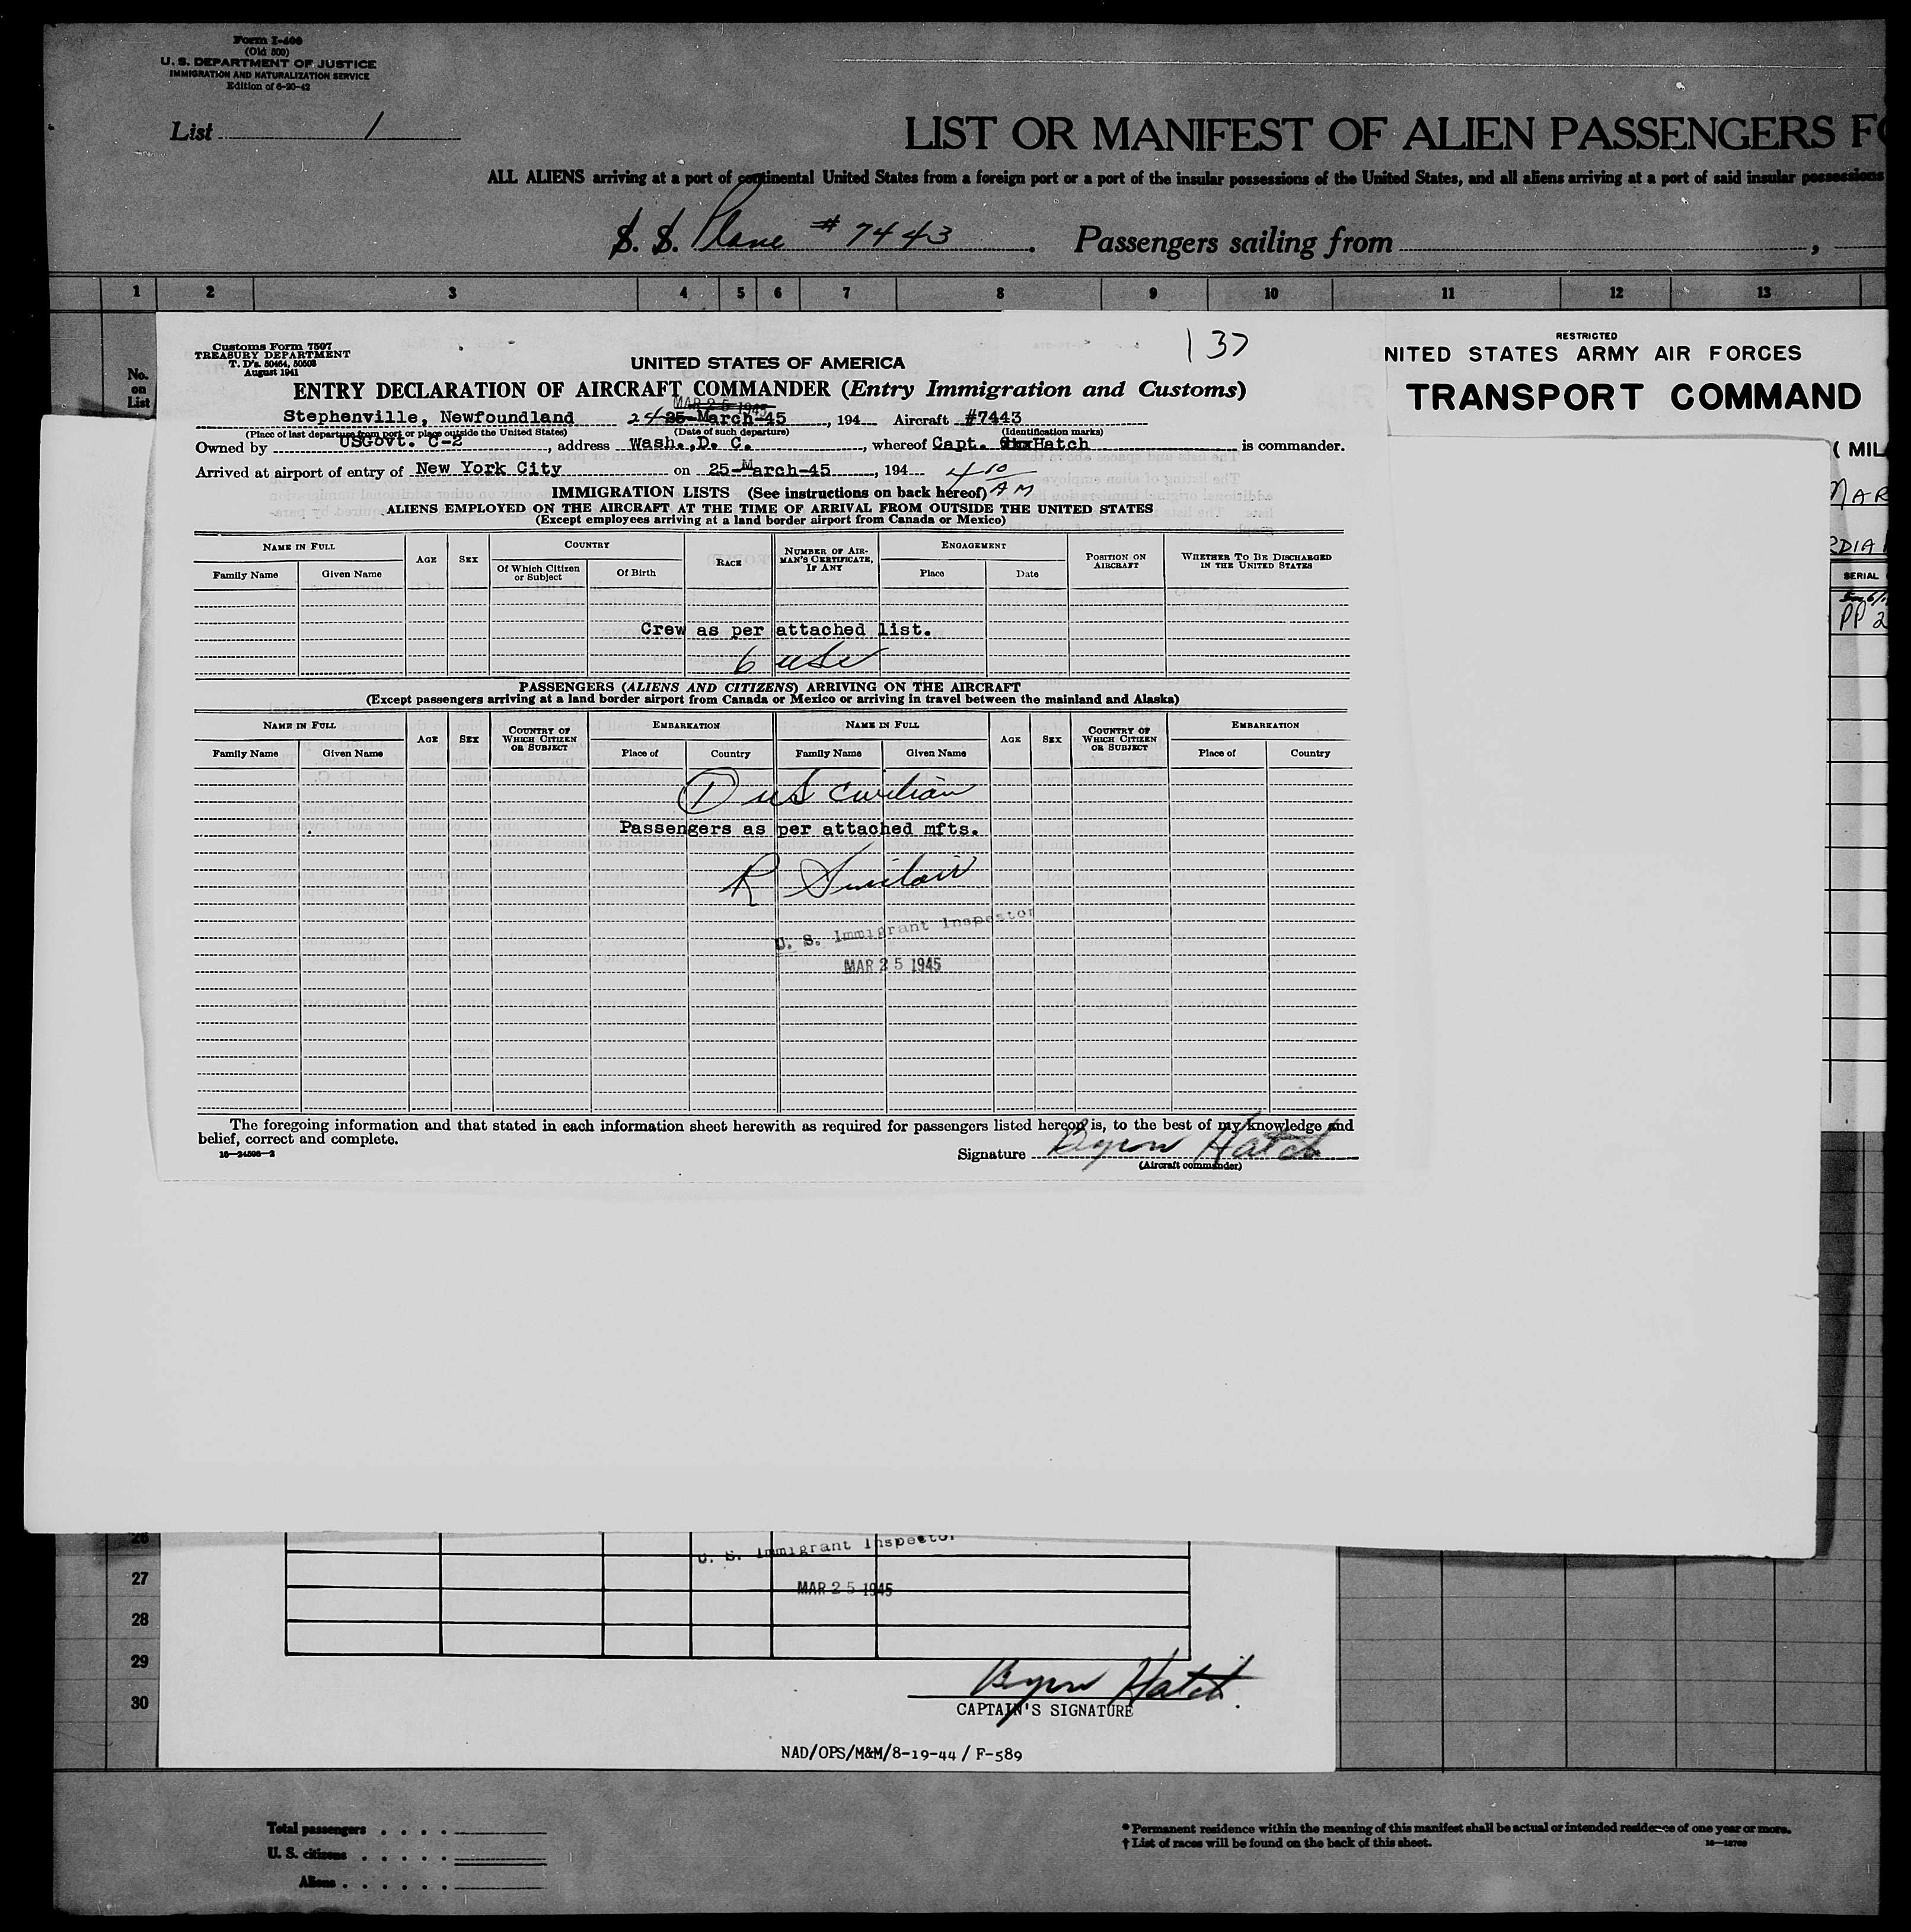 Form I-400
(Old 500)
U. S. DEPARTMENT OF JUSTICE
IMMIGRATION AND NATURALIZATION SERVICE
Edition of 6-20-42
List 1
LIST OR MANIFEST OF ALIEN PASSENGERS
ALL ALIENS arriving at a port of continental United States from a foreign port or a port of the insular possessions of the United States, and all aliens arriving at a port of said insular possessions
S. S. Plane # 7443. Passengers sailing from ,
1 2 3 4 5 6 7 8 9 10 11 12 13
No.
on
List
Customs Form 7507
TREASURY DEPARTMENT
T. D's. 50464, 50503
August 1941
137
UNITED STATES OF AMERICA
ENTRY DECLARATION OF AIRCRAFT COMMANDER (Entry Immigration and Customs)
MAR 25 1945
Stephenville, Newfoundland 24 25-March-45, 194 Aircraft #7443
(Place of last departure from port or place outside the United States) (Date of such departure) (Identification marks)
Owned by USGovt. C-2, address Wash.,D. C., whereof Capt. Hatch is commander.
Arrived at airport of entry of New York City on 25-March-45, 194 4 10 AM
IMMIGRATION LISTS (See instructions on back hereof)
ALIENS EMPLOYED ON THE AIRCRAFT AT THE TIME OF ARRIVAL FROM OUTSIDE THE UNITED STATES
(Except employees arriving at a land border airport from Canada or Mexico)
NAME IN FULL AGE SEX COUNTRY RACE NUMBER OF AIRMAN'S CERTIFICATE, IF ANY ENGAGEMENT POSITION ON AIRCRAFT WHETHER TO BE DISCHARGED IN THE UNITED STATES
Family Name Given Name Of Which Citizen or Subject Of Birth Place Date
Crew as per attached list.
6 USC
PASSENGERS (ALIENS AND CITIZENS) ARRIVING ON THE AIRCRAFT
(Except passengers arriving at a land border airport from Canada or Mexico or arriving in travel between the mainland and Alaska)
NAME IN FULL AGE SEX COUNTRY OF WHICH CITIZEN OR SUBJECT EMBARKATION NAME IN FULL AGE SEX COUNTRY OF WHICH CITIZEN OR SUBJECT EMBARKATION
Family Name Given Name Place of Country Family Name Given Name Place of Country
1 US civilian
Passengers as per attached mfts.
R Sinclair
U. S. Immigrant Inspector
MAR 25 1945
The foregoing information and that stated in each information sheet herewith as required for passengers listed hereon is, to the best of my knowledge and
belief, correct and complete.
16—24598—2
Signature Byron Hatch
(Aircraft commander)
RESTRICTED
NITED STATES ARMY AIR FORCES
TRANSPORT COMMAND
( MIL
MAR
RDIA
SERIAL
PP 2
26
U. S. Immigrant Inspector
27
MAR 25 1945
28
29
30
Byron Hatch
CAPTAIN'S SIGNATURE
NAD/OPS/M&M/8-19-44 / F-589
Total passengers
U. S. citizens
Aliens
* Permanent residence within the meaning of this manifest shall be actual or intended residence of one year or more.
† List of races will be found on the back of this sheet.